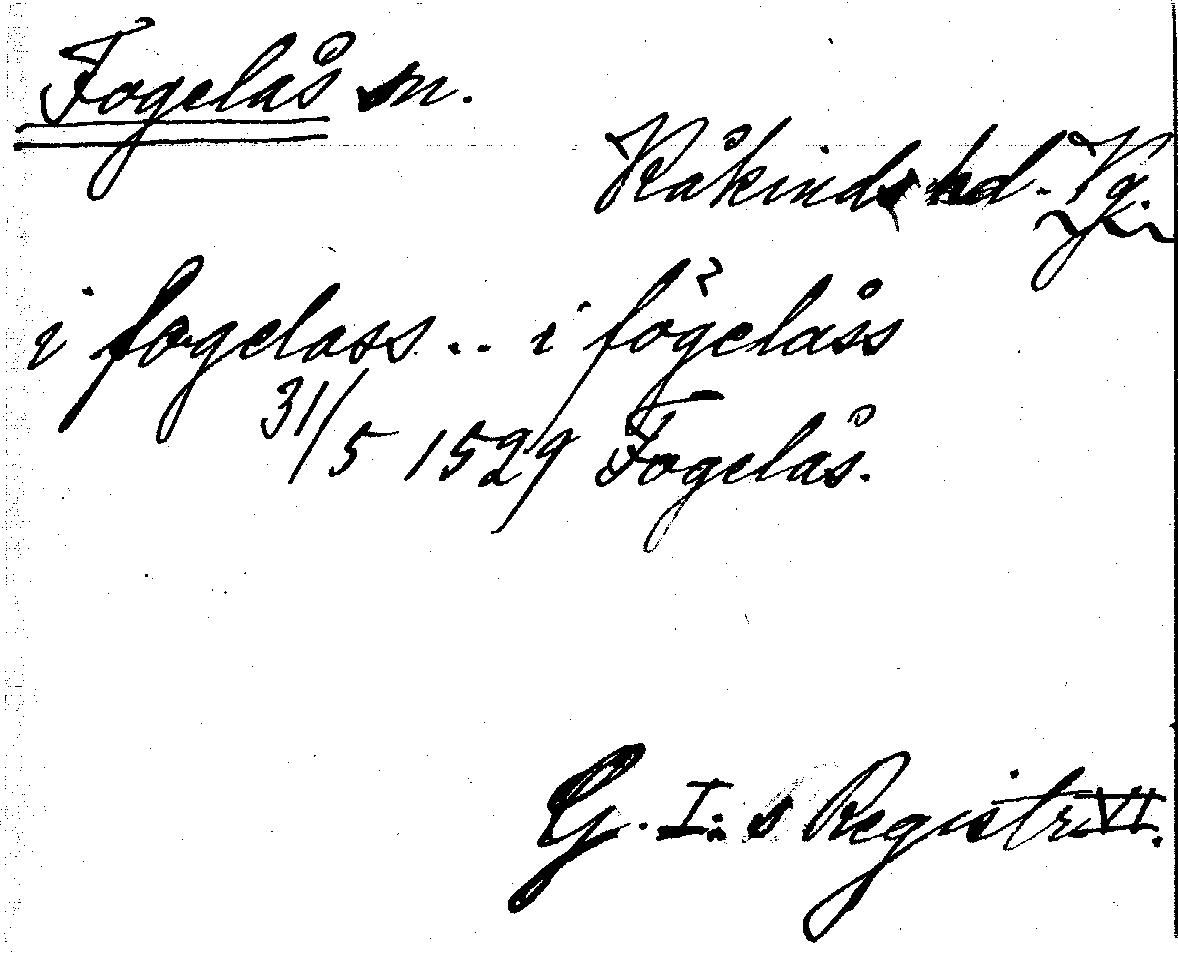 Fogelås sn.
Kåkinds hd. Vg.
i fogelass .. i fögelåss
31/5 1529 Fogelås.
G. I:s Registr. VI.